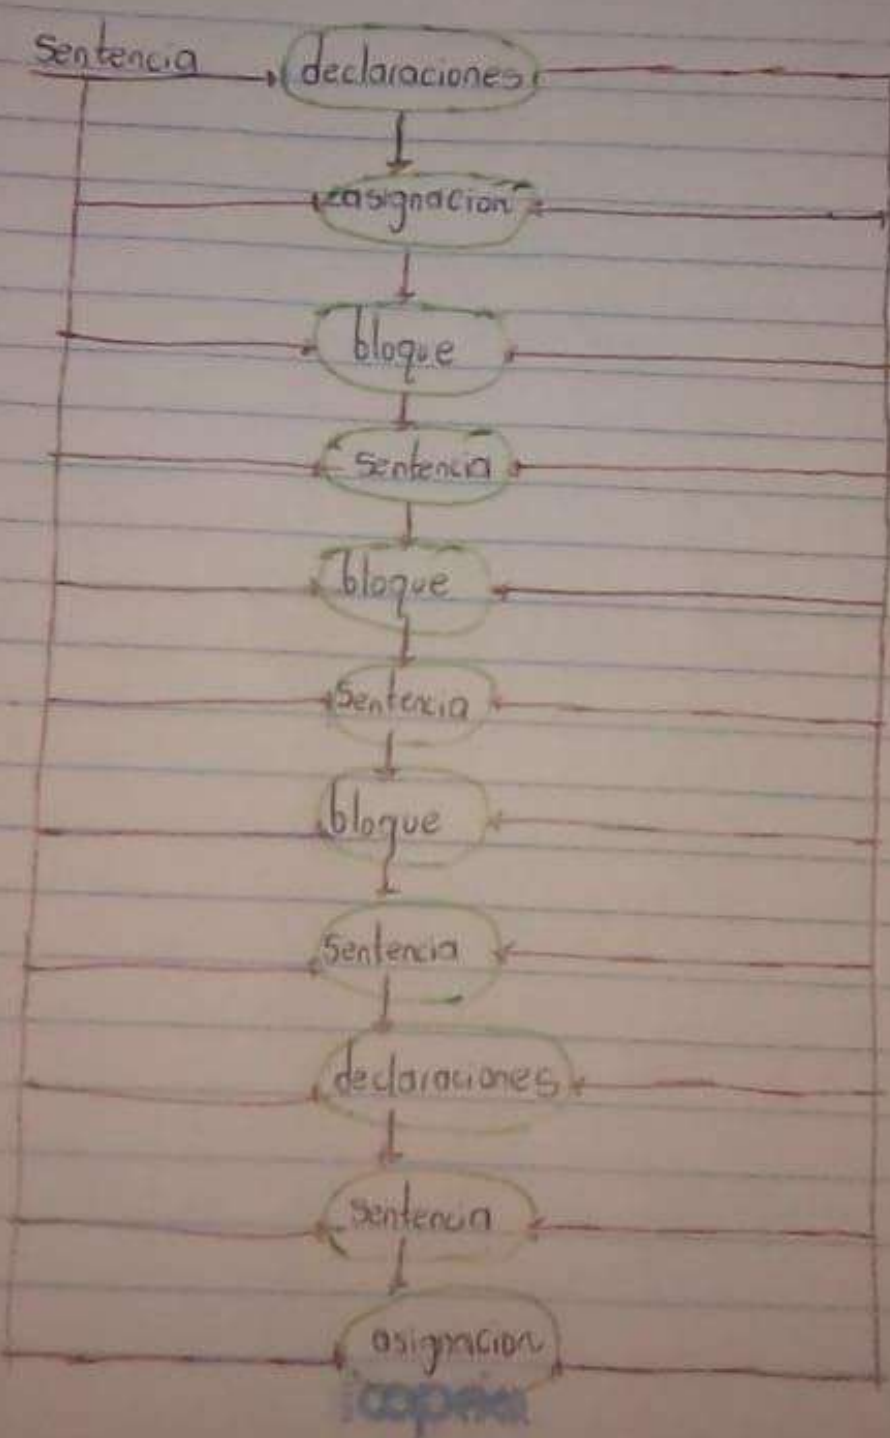 Sentencia
declaraciones
asignacion
bloque
Sentencia
bloque
Sentencia
bloque
Sentencia
declaraciones
Sentencia
asignacion